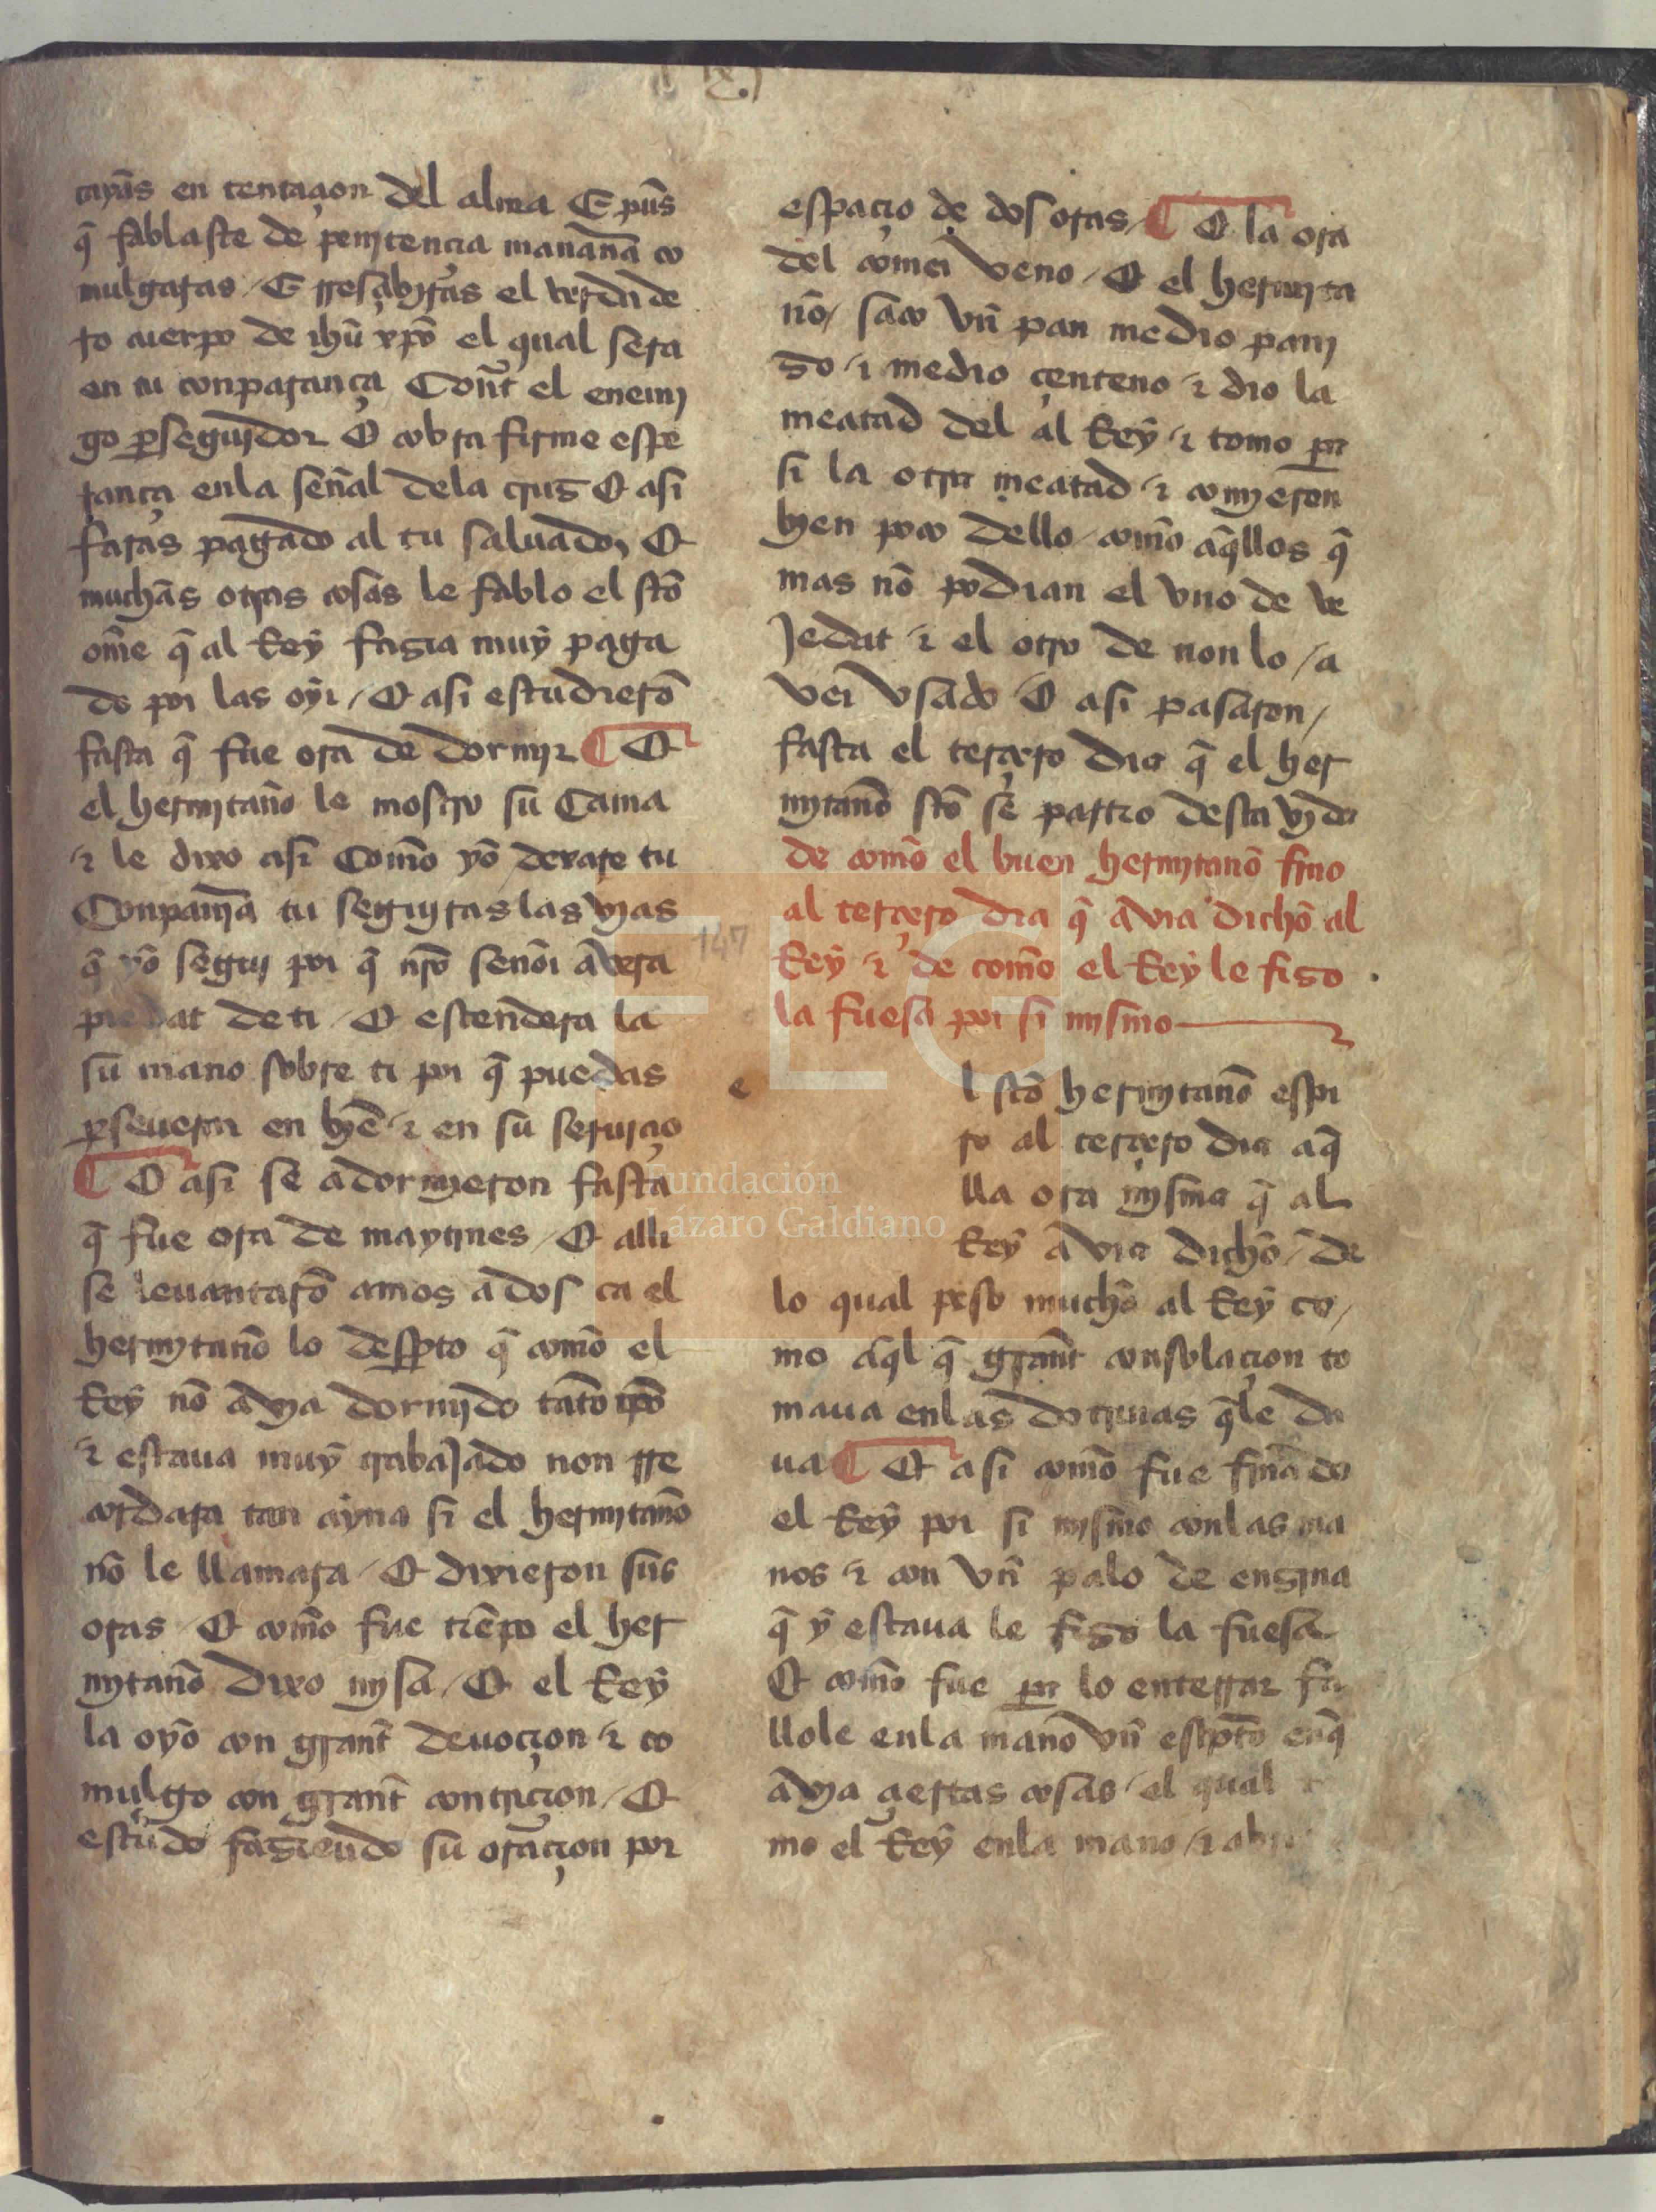 cayas en tentaçion del alma E pūs
q̄ fablaste de penjtencia mañana co
mulgaras / E rresçibiras el verdade
ro cuerpo de ihū xpō el qual sera
en tu conparança Cont̃ el enemj
go p̱seguidor E cobra firme espe
rança enla señal dela crus E asi
faras pagado al tu saluador E
muchas otras cosas le fablo el sto
ome q̄ al Rey fazia muy paga
do por las oyr / E asi estudierō
fasta q̄ fue ora de dormjr ¶ E
el hermjtaño le mostro su Cama
⁊ le dixo asi Como yo dexare tu
Conpañja tu seguiras las vjas
q̄ yo seguj por q̄ nr̄o señor avera
piedat de ti / E estendera la
su mano sobre ti por q̄ puedas
p̱seuerar en bjē ⁊ en su seruiçio
¶ E asi se adormjeron fasta
q̄ fue ora de maytines / E alli
se leuantarō amos a dos ca el
hermjtaño lo desp̱to q̄ como el
Rey nō avja dormjdo tāto tp̄o
⁊ estaua muy trabajado non rre
cordara tan ayna si el hermjtaño
nō le llamara / E dixieron sus
oras / E como fue tiēpo el her
mjtaño dixo mjsa / E el Rey
la oyo con grant deuoçion ⁊ co
mulgo con grant contriçion / E
estudo faziendo su oraçion por
espaçio de dos oras / ¶ E la ora
del comer veno / E el hermjta
ño / saco vn̄ pan medio panj
zo ⁊ medio çenteno ⁊ dio la
meatad del al Rey ⁊ tomo p̱a
si la otra meatad ⁊ comjeron
bien poco dello / como aq̄llos q̄
mas nō podian el vno de ve
jedat ⁊ el otro de non lo / a
ver vsado E asi pasaron /
fasta el terçero dia q̄ el her
mjtaño sto se partio desta vjda
de como el buen hermjtaño fino
al terçero dia q̄ avia dicho al
Rey ⁊ de como el Rey le fizo
la fuesa por si mjsmo
147
e
l sto hermjtaño espi
ro al terçero dia aq̄
lla ora mjsma q̄ al
Rey avia dicho / de
lo qual peso mucho al Rey co /
mo aq̄l q̄ grant consolaçion to
maua enlas dotrinas q̄le da
ua ¶ E asi como fue finado
el Rey por si mjsmo conlas ma
nos ⁊ con vn̄ palo de enzina
q̄ y estaua le fizo la fuesa
E como fue p̱a lo enterrar fa
llole enla mano vn̄ escp̱to enq̄
avja çiertas cosas / el qual
mo el Rey enla mano / ⁊
FLG
Fundación
Lázaro Galdiano